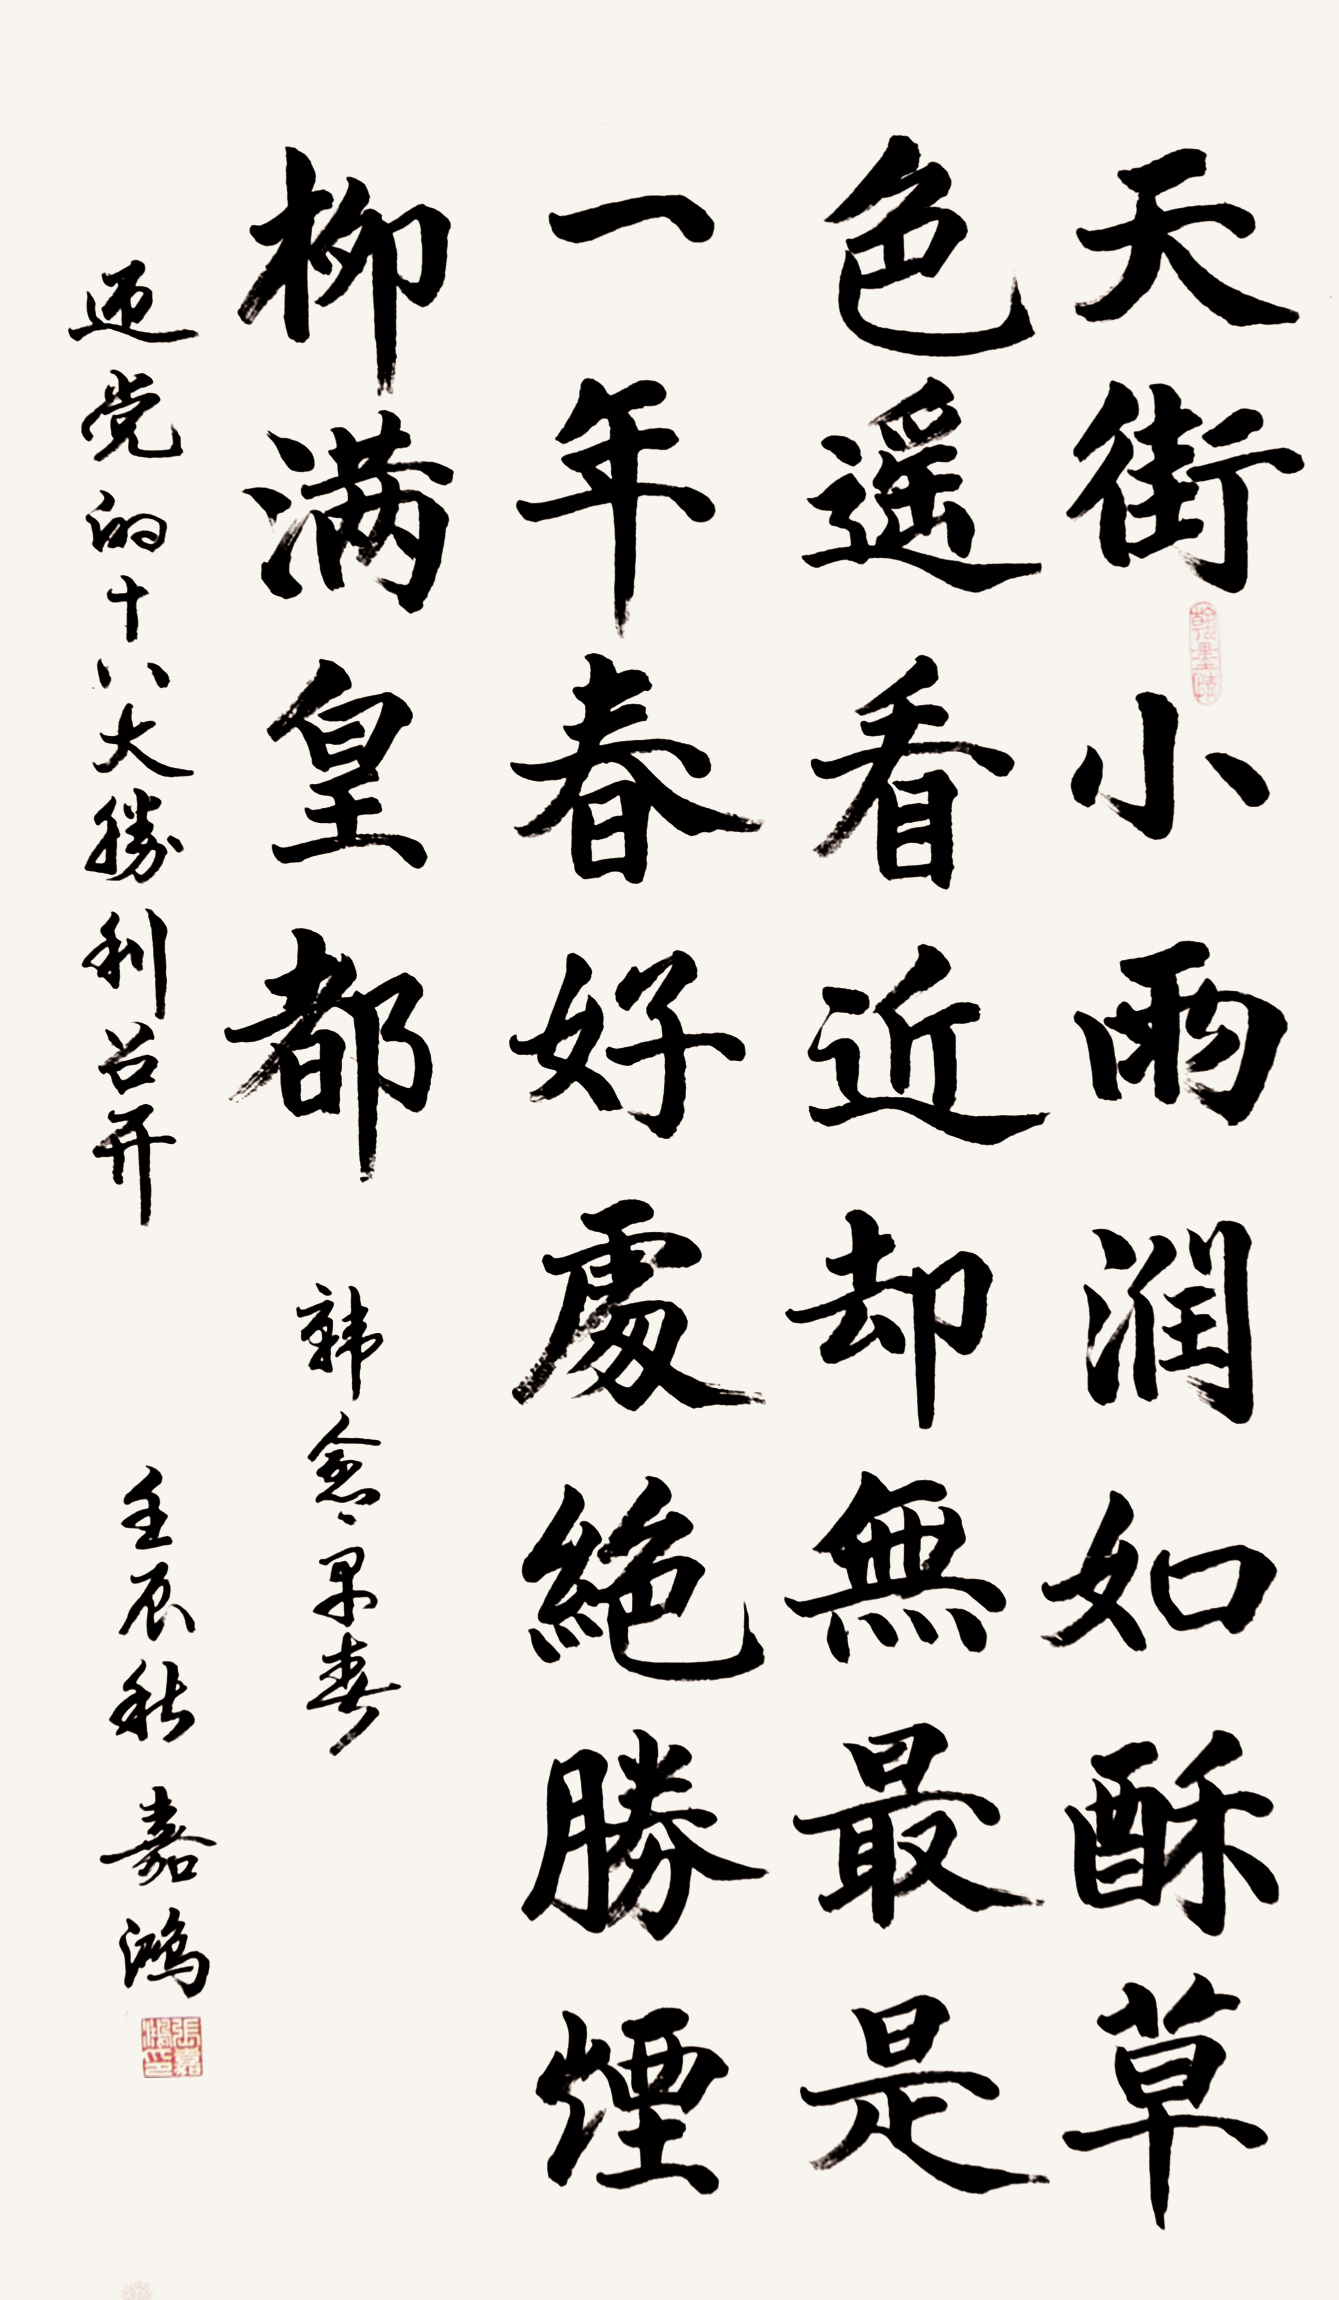 天街小雨润如酥草
色遥看近却無最是
一年春好處絕勝煙
柳满皇都
韩愈早春
迎党的十八大勝利召开
壬辰秋 嘉鸿
張嘉鴻印